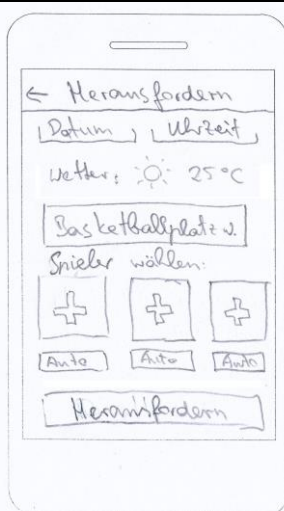 ← Herausfordern
Datum Uhrzeit
Wetter: 25°C
Basketballplatz w.
Spieler wählen:
Auto Auto Auto
Herausfordern